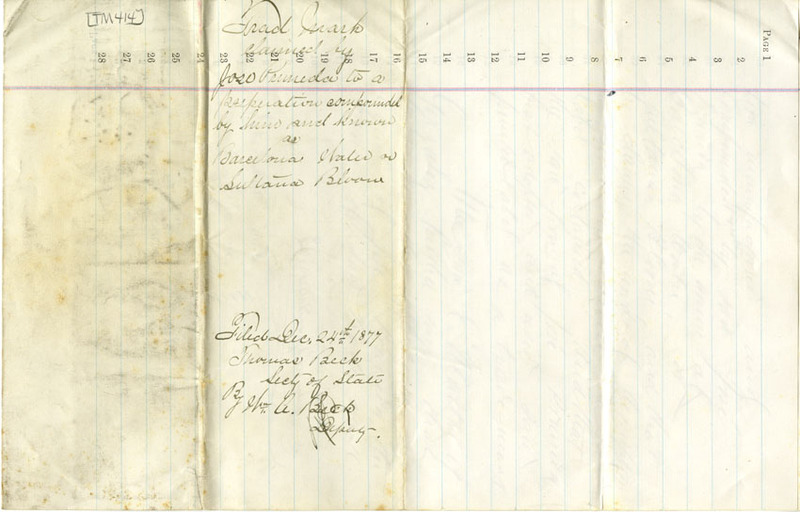 [TM414]
PAGE 1
28 27 26 25 24 23 22 21 20 19 18 17 16 15 14 13 12 11 10 9 8 7 6 5 4 3 2
Trad Mark
claimed by
Jozo to a
Preperation compounded
by him and known
as
Barcelona Water or
Sultana Bloom
Filed Dec. 24th 1877
Thomas Beck
Secty of State
By Wm. A. Beck
Deputy.